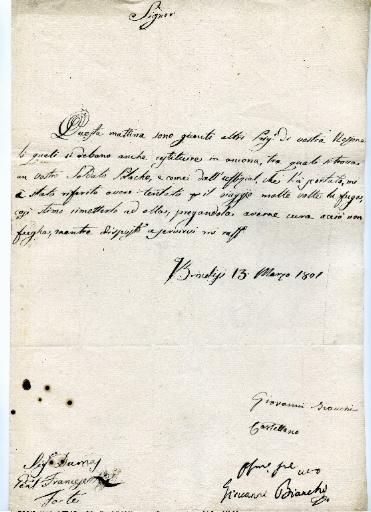 Signor
Questa mattina sono giunti altri Prig.ri di vostra Nazione
li quali si debono anche custituire in ancona, tra quali si trova
un vostro Soldato Polacho, e come dall' uffizial, che l'à portato, mi
è stato riferito avere tentato p il viaggio molte volte la fuga,
cosi stimo rimetterlo ad ella, pregandola averne cura acciò non
fugha, mentre disposto a servirvi mi raff.
Brindisi 13 Marzo 1801
Giovanni Bianchi
Castellano
Sig.
Forte
Giovanni Bianchi